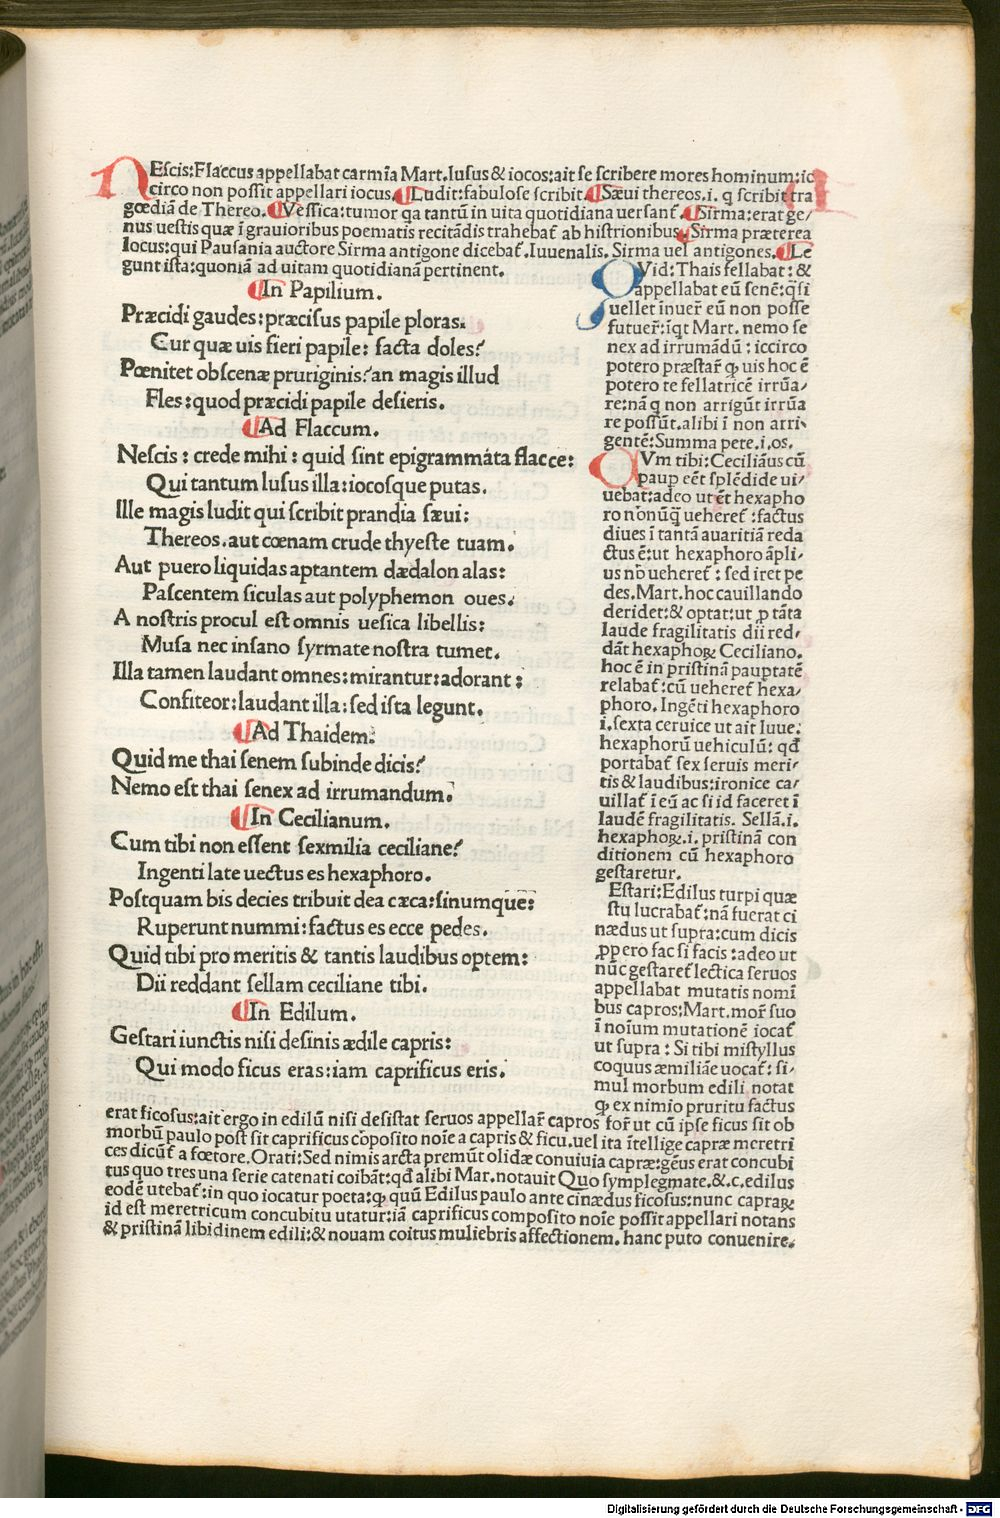 NEscis:Flaccus appellabat carmīa Mart.lusus & iocos:ait se scribere mores hominum:ic
circo non possit appellari iocus.Ludit:fabulose scribit.Sæui thereos.i. q scribit tra
gœdiā de Thereo.Vessica:tumor qa tantū in uita quotidiana uersant͛.Sirma:erat ge/
nus uestis quæ ī grauioribus poematis recitādis trahebat͛ ab histrionibus.Sirma præterea
locus:qui Pausania auctore Sirma antigone dicebat͛.Iuuenalis. Sirma uel antigones.Le
gunt ista:quoniā ad uitam quotidianā pertinent.
In Papilium.
Præcidi gaudes:præcisus papile ploras.
Cur quæ uis fieri papile: facta doles?
Pœnitet obscenæ pruriginis?an magis illud
Fles:quod præcidi papile desieris.
Ad Flaccum.
Nescis: crede mihi: quid sint epigrammata flacce:
Qui tantum lusus illa:iocosque putas.
Ille magis ludit qui scribit prandia sæui:
Thereos.aut cœnam crude thyeste tuam.
Aut puero liquidas aptantem dædalon alas:
Pascentem siculas aut polyphemon oues.
A nostris procul est omnis uesica libellis:
Musa nec insano syrmate nostra tumet.
Illa tamen laudant omnes:mirantur:adorant:
Confiteor:laudant illa:sed ista legunt.
Ad Thaidem.
Quid me thai senem subinde dicis?
Nemo est thai senex ad irrumandum.
In Cecilianum.
Cum tibi non essent sexmilia ceciliane?
Ingenti late uectus es hexaphoro.
Postquam bis decies tribuit dea cæca:sinumque:
Ruperunt nummi:factus es ecce pedes.
Quid tibi pro meritis & tantis laudibus optem:
Dii reddant sellam ceciliane tibi.
In Edilum.
Gestari iunctis nisi desinis ædile capris:
Qui modo ficus eras:iam caprificus eris.
QVid:Thais fellabat:&
appellabat eū senē:q̄ si
uellet inuer͛ eū non posse
futuer͛:īqt Mart. nemo se
nex ad irrumādū:iccirco
potero præstar͛ ꝙ uis hoc ē
potero te fellatricē irrūa/
re:nā q non arrigūt irrūa
re possūt.alibi ī non arri
gentē:Summa pete.i.os.
CVm tibi:Ceciliāus cū
paup eēt splēdide ui/
uebat:adeo ut ēt hexapho
ro nōnūq̄ ueheret͛:factus
diues ī tantā auaritiā reda
ctus ē:ut hexaphoro āpli/
us nō ueheret͛:sed iret pe
des.Mart.hoc cauillando
deridet:& optat:ut ꝓ tāta
laude fragilitatis dii red/
dāt hexaphoꝝ Ceciliano.
hoc ē in pristinā pauptatē
relabat͛:cū ueheret͛ hexa/
phoro.Ingēti hexaphoro
i.sexta ceruice ut ait Iuue:
hexaphorū uehiculū:qđ
portabat͛ sex seruis meri/
tis & laudibus:ironice ca/
uillat͛ ī eū ac si id faceret ī
laudē fragilitatis. Sellā.i.
hexaphoꝝ.i.pristinā con
ditionem cū hexaphoro
gestaretur.
Estari:Edilus turpi quæ
stu lucrabat͛:nā fuerat ci
nædus ut supra:cum dicis
ꝓpero fac si facis:adeo ut
nūc gestaret͛ lectica seruos
appellabat mutatis nomī
bus capros:Mart.mor͛ suo
ī noīum mutationē iocat͛
ut supra:Si tibi mistyllus
coquus æmiliāe uocat͛:si/
mul morbum edili notat
ꝙ ex nimio pruritu factus
erat ficosus:ait ergo in edilū nisi desistat seruos appellar͛ capros for͛ ut cū ipse ficus sit ob
morbū paulo post sit caprificus cōposito noīe a capris & ficu.uel ita ītellige capræ meretri
ces dicūt͛ a fœtore.Orati:Sed nimis arcta premūt olidæ conuiuia capræ:gēus erat concubi
tus quo tres una serie catenati coibāt:qđ alibi Mar.notauit Quo symplegmate.&.c.edilus
eodē utebat͛:in quo iocatur poeta:ꝙ quū Edilus paulo ante cinædus ficosus:nunc capraꝝ
id est meretricum concubitu utatur:iā caprificus composito noīe possit appellari notans
& pristinā libidinem edili:& nouam coitus muliebris affectionem.hanc puto conuenire.
Digitalisierung gefördert durch die Deutsche Forschungsgemeinschaft - DFG